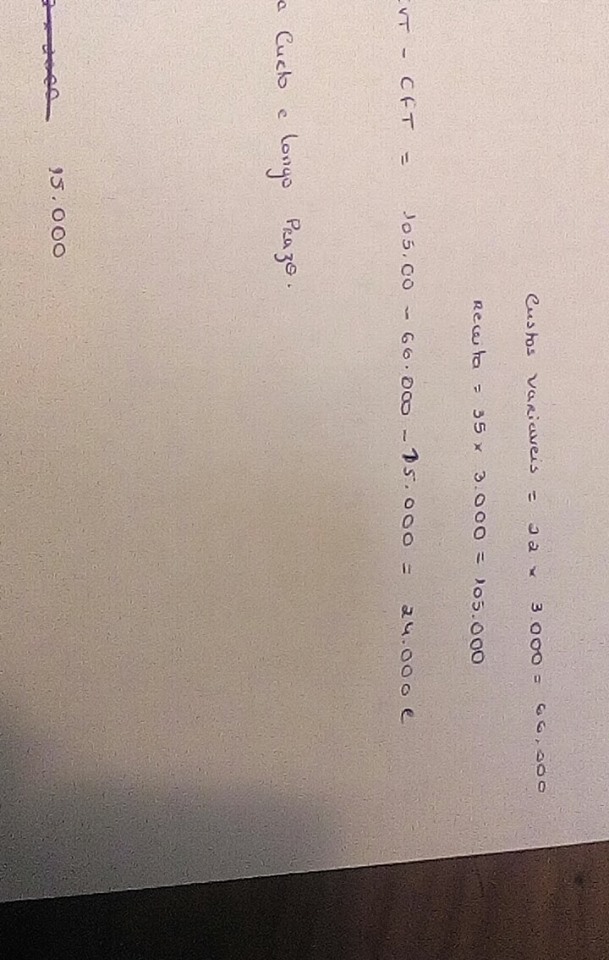 Custos Variaveis = 22 x 3.000 = 66.000
Receita = 35 x 3.000 = 105.000
CVT - CFT = 105.00 - 66.000 - 15.000 = 24.000 €
a Curto e longo Prazo.
15.000